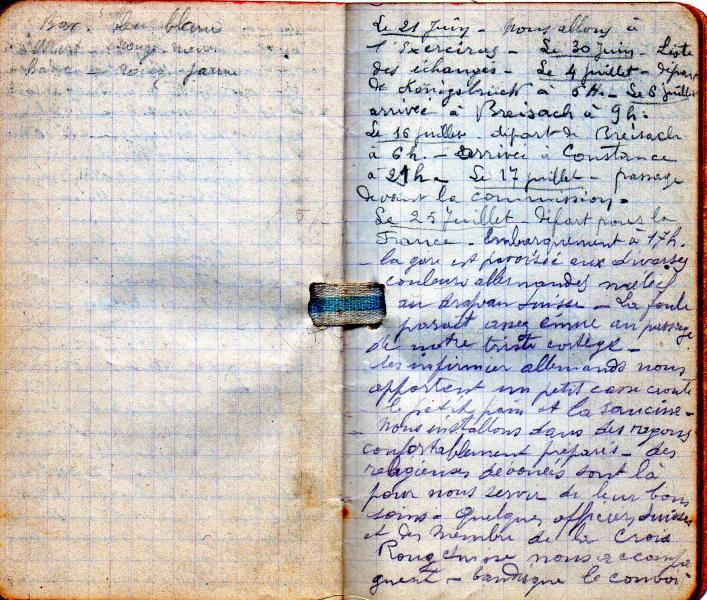 Bav. bleu blanc
rouge noir
Bade - rouge jaune
Le 21 Juin - Nous allons à
l'Exercirus - Le 30 Juin - Liste
des échangés - Le 4 juillet - départ
de Königsbrück à 6H. - Le 5 juillet
arrivée à Breisach à 9h.
Le 16 juillet départ de Breisach
à 6h. - arrivée à Constance
à 21h - Le 17 juillet - passage
devant la commission -
Le 25 Juillet - Départ pour la
France - Embarquement à 17h.
- la gare est pavoisée aux diverses
couleurs allemandes mêlées
au drapeau suisse - La foule
paraît assez émue au passage
de notre triste cortège -
les infirmier allemands nous
apportent un petit casse croute
le petit pain et la saucisse -
Nous installons dans des wagons
confortablement préparés - des
religieuses dévouées sont là
pour nous servir de leur bons
soins - Quelques officiers suisses
et des membre de la Croix
Rouge suisse nous accompa
gnent - le convoi